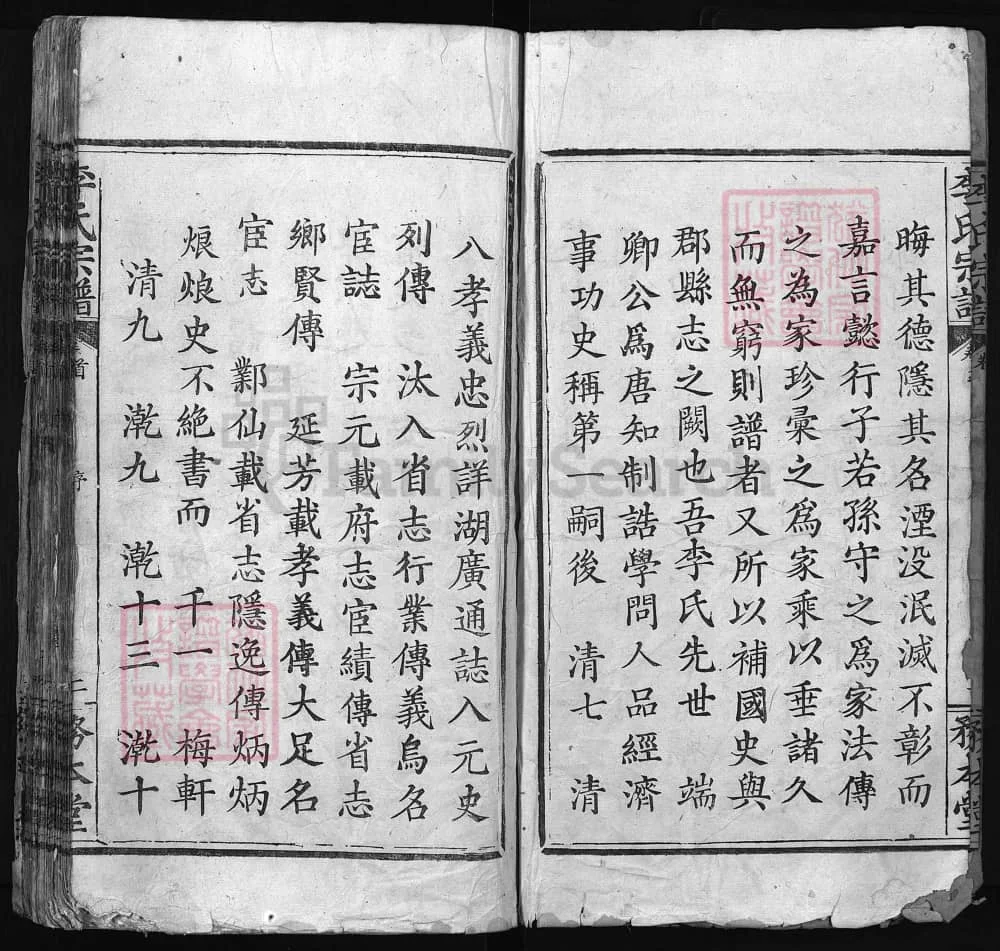 晦其德隱其名湮没泯滅不彰而
嘉言懿行子若孫守之爲家法傳
之為家珍彙之爲家乘以垂諸久
而無窮則譜者又所以補國史與
郡縣志之闕也吾李氏先世 端
卿公爲唐知制誥學問人品經濟
事功史稱第一嗣後 清七 清
八孝義忠烈詳湖廣通誌入元史
列傳 汰入省志行業傳義烏名
宦誌 宗元載府志宦績傳省志
鄉賢傳 延芳載孝義傳大足名
宦志 酇仙載省志隱逸傳炳炳
烺烺史不絶書而 千一 梅軒
清九 漧九 漧十三 漧十
李氏宗譜 卷首 序 二 務本堂
FamilySearch